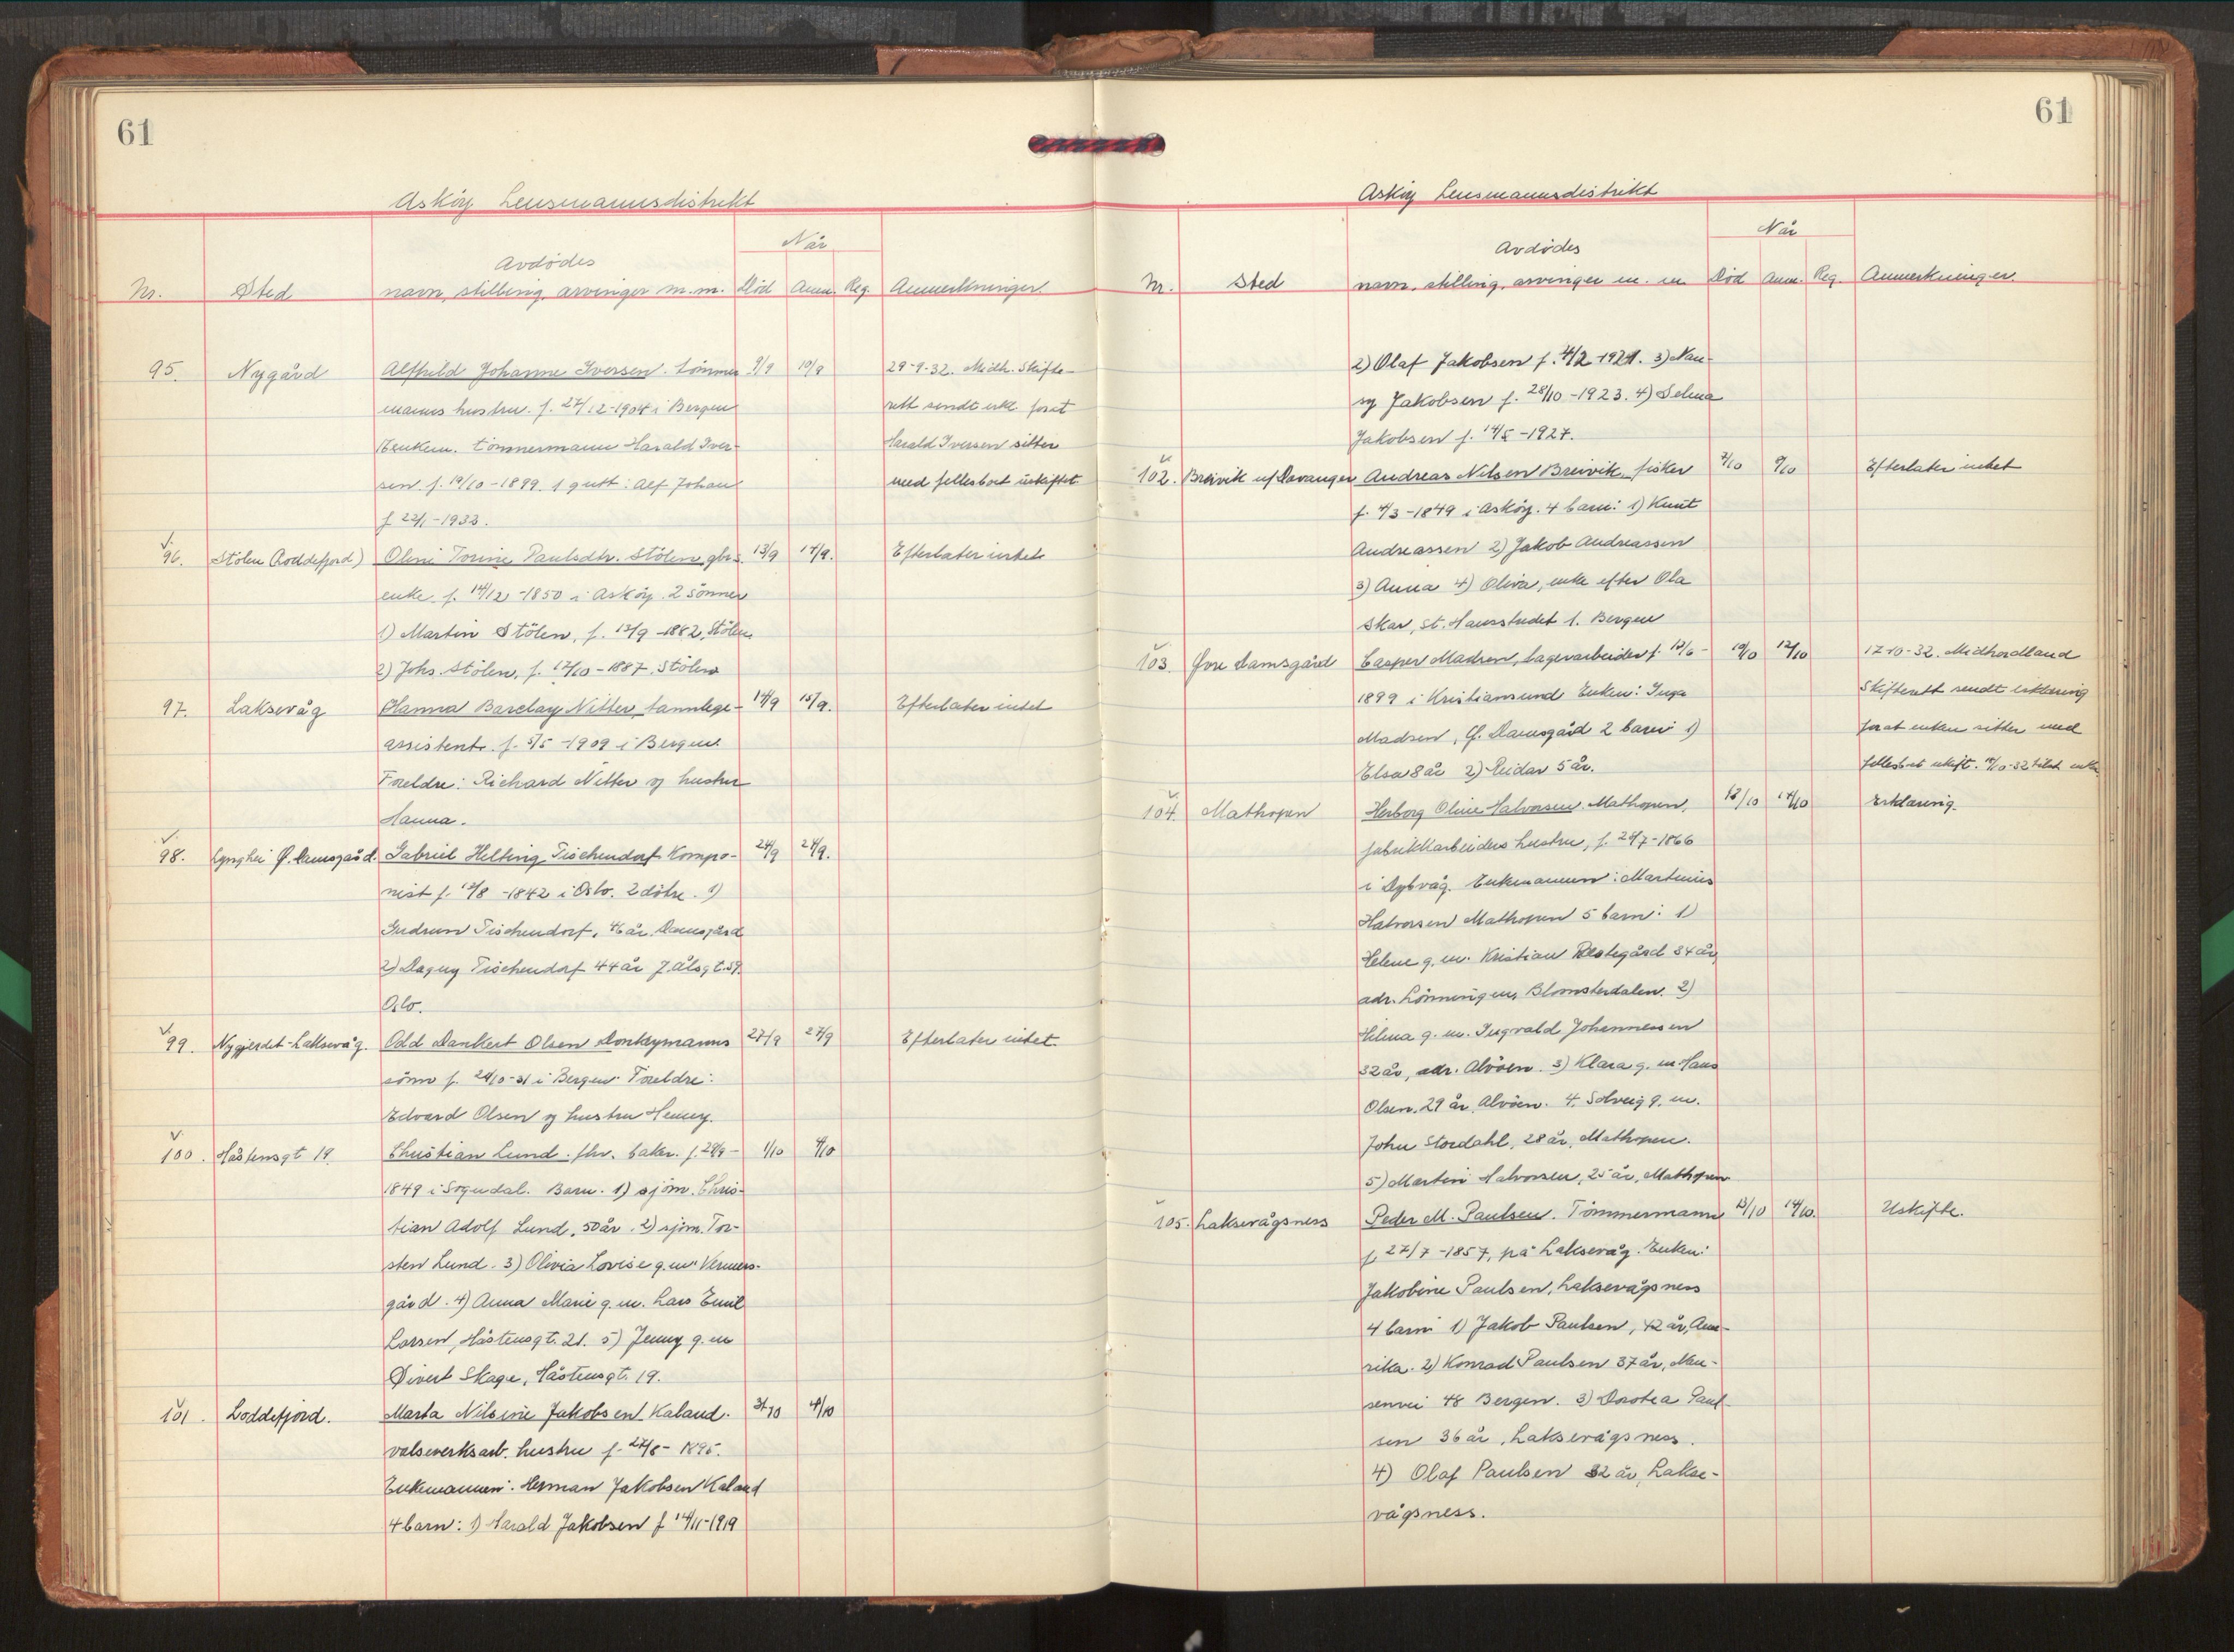 61
Askøy Lensmannsdistrikt
Når
Avdödes
Nr. Sted navn, stilling, arvinger m.m. Död Anm. Reg. Anmerkninger.
95. Nygård Alfhild Johanne Iversen. tömmer 9/9 10/9 29-9-32. Midh. Skifte-
manns hustru. f. 27/12-1904 i Bergen rett sendt erkl. forat
Enkem. tömmermann Harald Iver- Harald Iversen sitter
sen. f. 19/10-1899. 1 gutt: Alf Johan med fellesboet uskiftet.
f. 22/1-1933.
96. Stölen (Loddefjord) Oline Torine Paulsdtr. Stölen, gbrs. 13/9 14/9. Efterlater intet
enke. f. 14/12-1850 i Askøy. 2 sönner
1) Martin Stölen, f. 13/9-1882, Stölen
2) Johs. Stölen, f. 12/10-1887. Stölen
97. Laksevåg Hanna Barclay Nitter, tannlege- 14/9 15/9. Efterlater intet
assistent. f. 5/5-1909 i Bergen.
Foreldre: Richard Nitter og hustru
Hanna.
98. Lynghei Ø. Damsgård. Gabriel Helting Tischendorf Kompo- 24/9 24/9.
nist f. 12/8-1842 i Oslo. 2 dötre. 1)
Gudrun Tischendorf, 46 år. Damsgård
2) Dagny Tischendorf 44 år
Oslo.
99. Nygjerdet-Laksevåg. Odd Dankert Olsen Donkeymanns 27/9 27/9 Efterlater intet.
sönn f. 24/10-31 i Bergen Foreldre:
Edvard Olsen og hustru Henny.
100. Håstensgt 19. Christian Lund. fhv. baker. f. 29/9- 1/10 4/10
1849 i Sogndal. Barn: 1) sjöm. Chris-
tian Adolf Lund, 50 år. 2) sjöm. Tor-
sten Lund. 3) Olivia Lovise g.m. Vermers-
gård. 4) Anna Marie g.m. Lars Emil
Larsen, Håstensgt. 21. 5) Jenny g.m
Sivert Skage, Håstensgt. 19.
101. Loddefjord. Marta Nilsine Jakobsen Kaland. 3/10 4/10
valseverksarb. hustru f. 27/8-1895.
Enkemannen: Herman Jakobsen Kaland
4 barn: 1) Harald Jakobsen f 14/11-1919
61
Askøy Lensmannsdistrikt
Når
Avdödes
Nr. Sted navn, stilling, arvinger m. m. Död Anm. Reg. Anmerkninger.
2) Olaf Jakobsen f. 4/2 1921. 3) Nan-
sy Jakobsen f. 28/10-1923. 4) Selma
Jakobsen f. 14/5-1927.
102. Breivik u/Davanger Andreas Nilsen Breivik, fisker 7/10 9/10 Efterlater intet
f. 4/3-1849 i Askøy. 4 barn: 1) Knut
Andreassen 2) Jakob Andreassen
3) Anna 4) Oliva, enke efter Ola
Skar, St. Hansstredet 1. Bergen
103. Øvre Damsgård Casper Madsen, lagerarbeider f. 12/6- 10/10 12/10 17-10-32. Midhordland
1899 i Kristiansund Enken: Inga Skifterett sendt erklæring
Madsen, Ø. Damsgård 2 barn 1) forat enken sitter med
Elsa 8 år 2) Reidar 5 år. fellesboet uskift.
104. Mathopen Herborg Oline Halvorsen. Mathopen, 13/10 14/10 Erklæring.
fabrikkarbeiders hustru, f. 24/7-1866
i Dybvåg. Enkemannen: Martinius
Halvorsen Mathopen 5 barn: 1)
Helene g.m. Kristian 34 år,
adr. Lönningen, Blomsterdalen. 2)
Helena g.m. Ingvald Johannessen
32 år, adr. Alvöen. 3) Klara g. m Hans
Olsen. 29 år, Alvöen. 4. Solveig g. m.
John Stordahl, 28 år, Mathopen.
5) Martin Halvorsen, 25 år, Mathopen
105. Laksevågsness Peder M. Paulsen. Tömmermann 13/10 14/10. Uskifte.
f. 27/7-1857, på Laksevåg. Enken:
Jakobine Paulsen, Laksevågsness
4 barn 1) Jakob Paulsen, 42 år, Ame-
rika. 2) Konrad Paulsen 37 år, Nan-
senvei 48 Bergen. 3) Dorotea Paul-
sen 36 år, Laksevågsness.
4) Olaf Paulsen 32 år, Lakse-
vågsness.